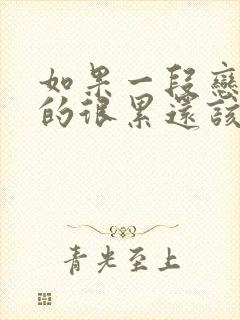 如果一段戀
的很累還該
青光至上